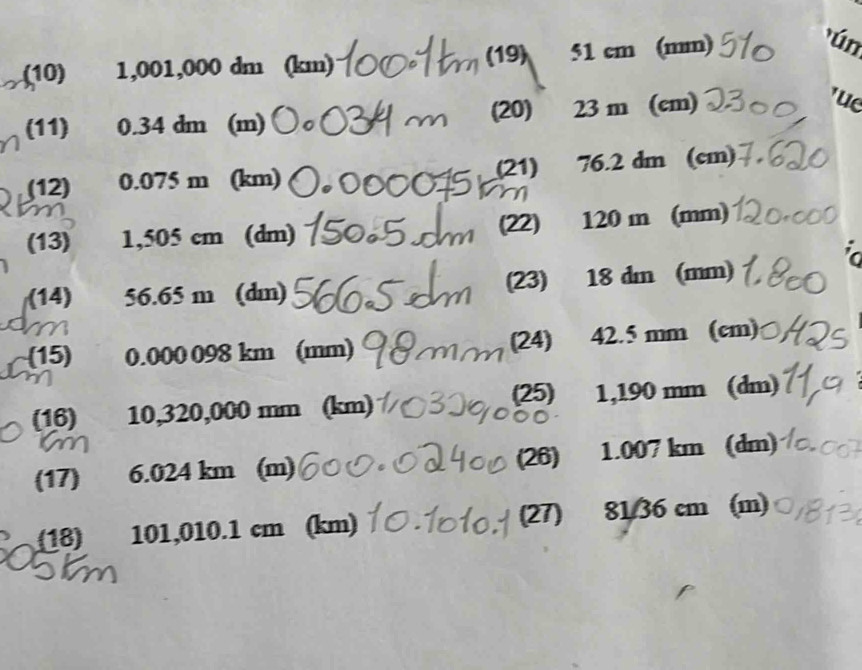 (10) 1,001,000 dm (km) 100.1km (19) 51 cm (mm) 510
(11) 0.34 dm (m) 0.034 m (20) 23 m (cm) 2300
(12) 0.075 m (km) 0.000075 km (21) 76.2 dm (cm) 7.620
(13) 1,505 cm (dm) 150.5 dm (22) 120 m (mm) 120.000
(14) 56.65 m (dm) 566.5 dm (23) 18 dm (mm) 1.800
dm
(15) 0.000 098 km (mm) 98 mm (24) 42.5 mm (cm) 0,425
(16) 10,320,000 mm (km) (25) 1,190 mm (dm) 11,9
km
(17) 6.024 km (m) 600.02400 (26) 1.007 km (dm) 10.007
(18) 101,010.1 cm (km) 10.1010.1 (27) 81/36 cm (m)
05 km